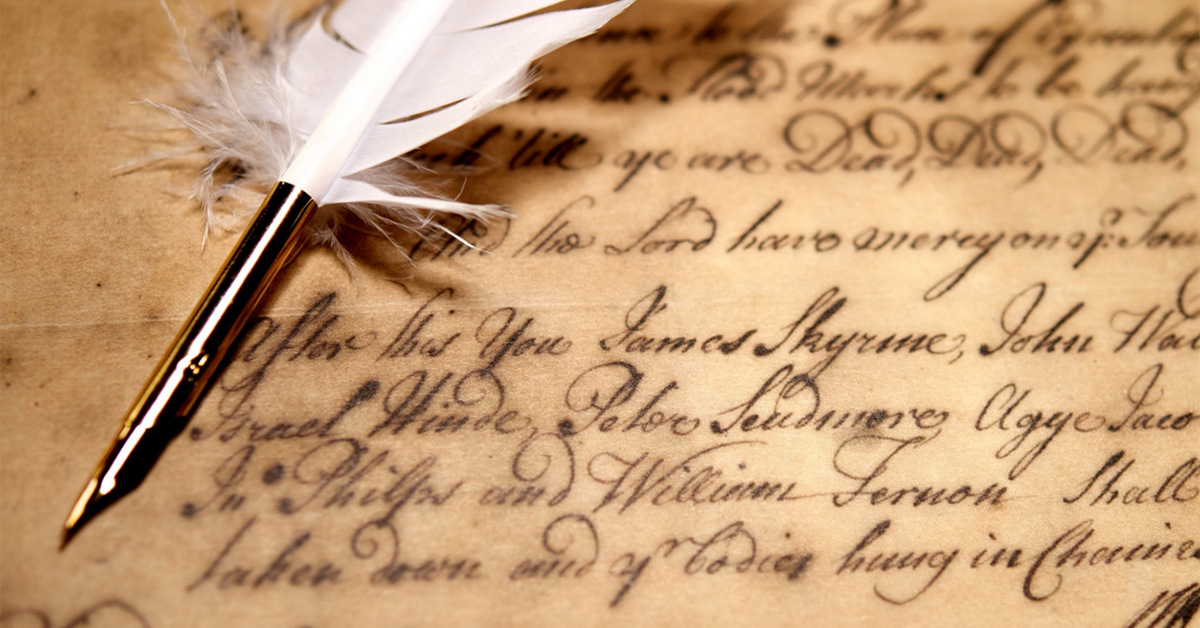 to the Place of
in the Flood Marks to be hang
till ye are Dead, Dead, Dead,
And the Lord have mercy on yr. Sou
After this You James Skyrme, John Wa
Israel Hinde, Peter Scudmore Agge Jaco
Jn° Philps and William Fernon Shall
taken down and yr bodies hung in Chaines